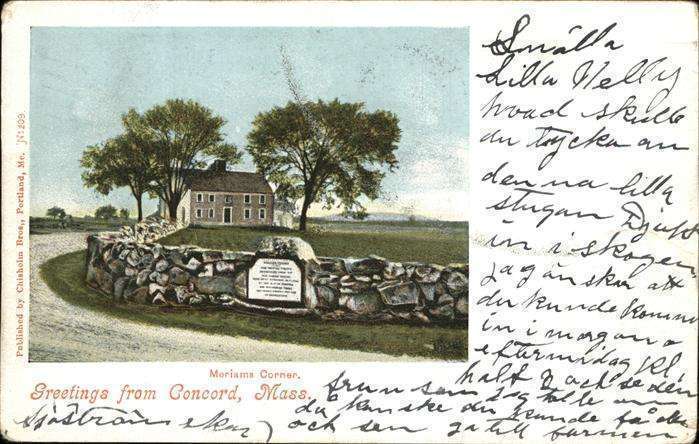 Published by Chisholm Bros., Portland, Me. No 209.
Meriams Corner.
Greetings from Concord, Mass.
Snälla
Lilla Nelly
hvad skulle
du tycka om
denna lilla
stugan Djupt
in i skogen
jag önskar att
du kunde komma
in i morgon
eftermidag Kl.
half 2 och se den
frun som jag talte om
då kanske du kunde få de
och sen gå till